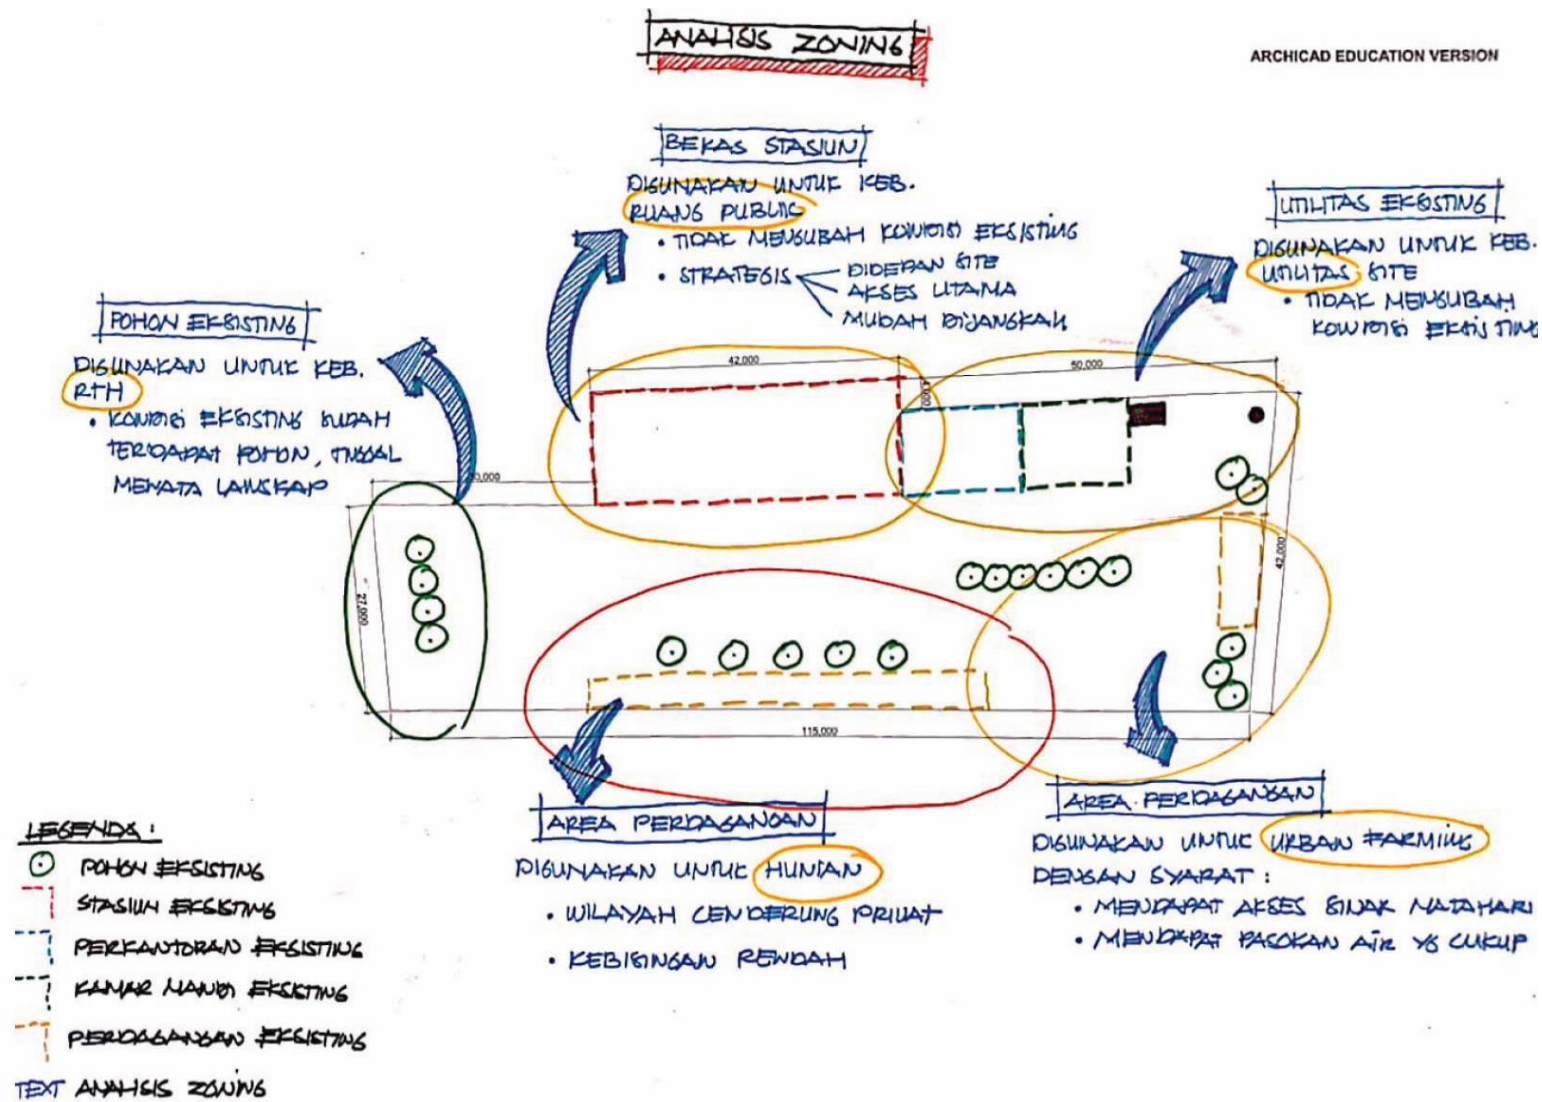 ANALISIS ZONING
ARCHICAD EDUCATION VERSION
BEKAS STASIUN
DIGUNAKAN UNTUK KEB.
RUANG PUBLIC
• TIDAK MENGUBAH KONDISI EKSISTING
• STRATEGIS
DIDEPAN SITE
AKSES UTAMA
MUDAH DIJANGKAU
UTILITAS EKSISTING
DIGUNAKAN UNTUK KEB.
UTILITAS SITE
• TIDAK MENGUBAH
KONDISI EKSISTING
POHON EKSISTING
DIGUNAKAN UNTUK KEB.
RTH
• KONDISI EKSISTING SUDAH
TERDAPAT POHON, TINGGAL
MENATA LANSKAP
42,000
50,000
27,000
42,000
115,000
AREA PERDAGANGAN
DIGUNAKAN UNTUK HUNIAN
• WILAYAH CENDERUNG PRIVAT
• KEBISINGAN RENDAH
AREA PERDAGANGAN
DIGUNAKAN UNTUK URBAN FARMING
DENGAN SYARAT :
• MENDAPAT AKSES SINAR MATAHARI
• MENDAPAT PASOKAN AIR YG CUKUP
LEGENDA :
POHON EKSISTING
STASIUN EKSISTING
PERKANTORAN EKSISTING
KAMAR MANDI EKSISTING
PERDAGANGAN EKSISTING
TEXT ANALISIS ZONING